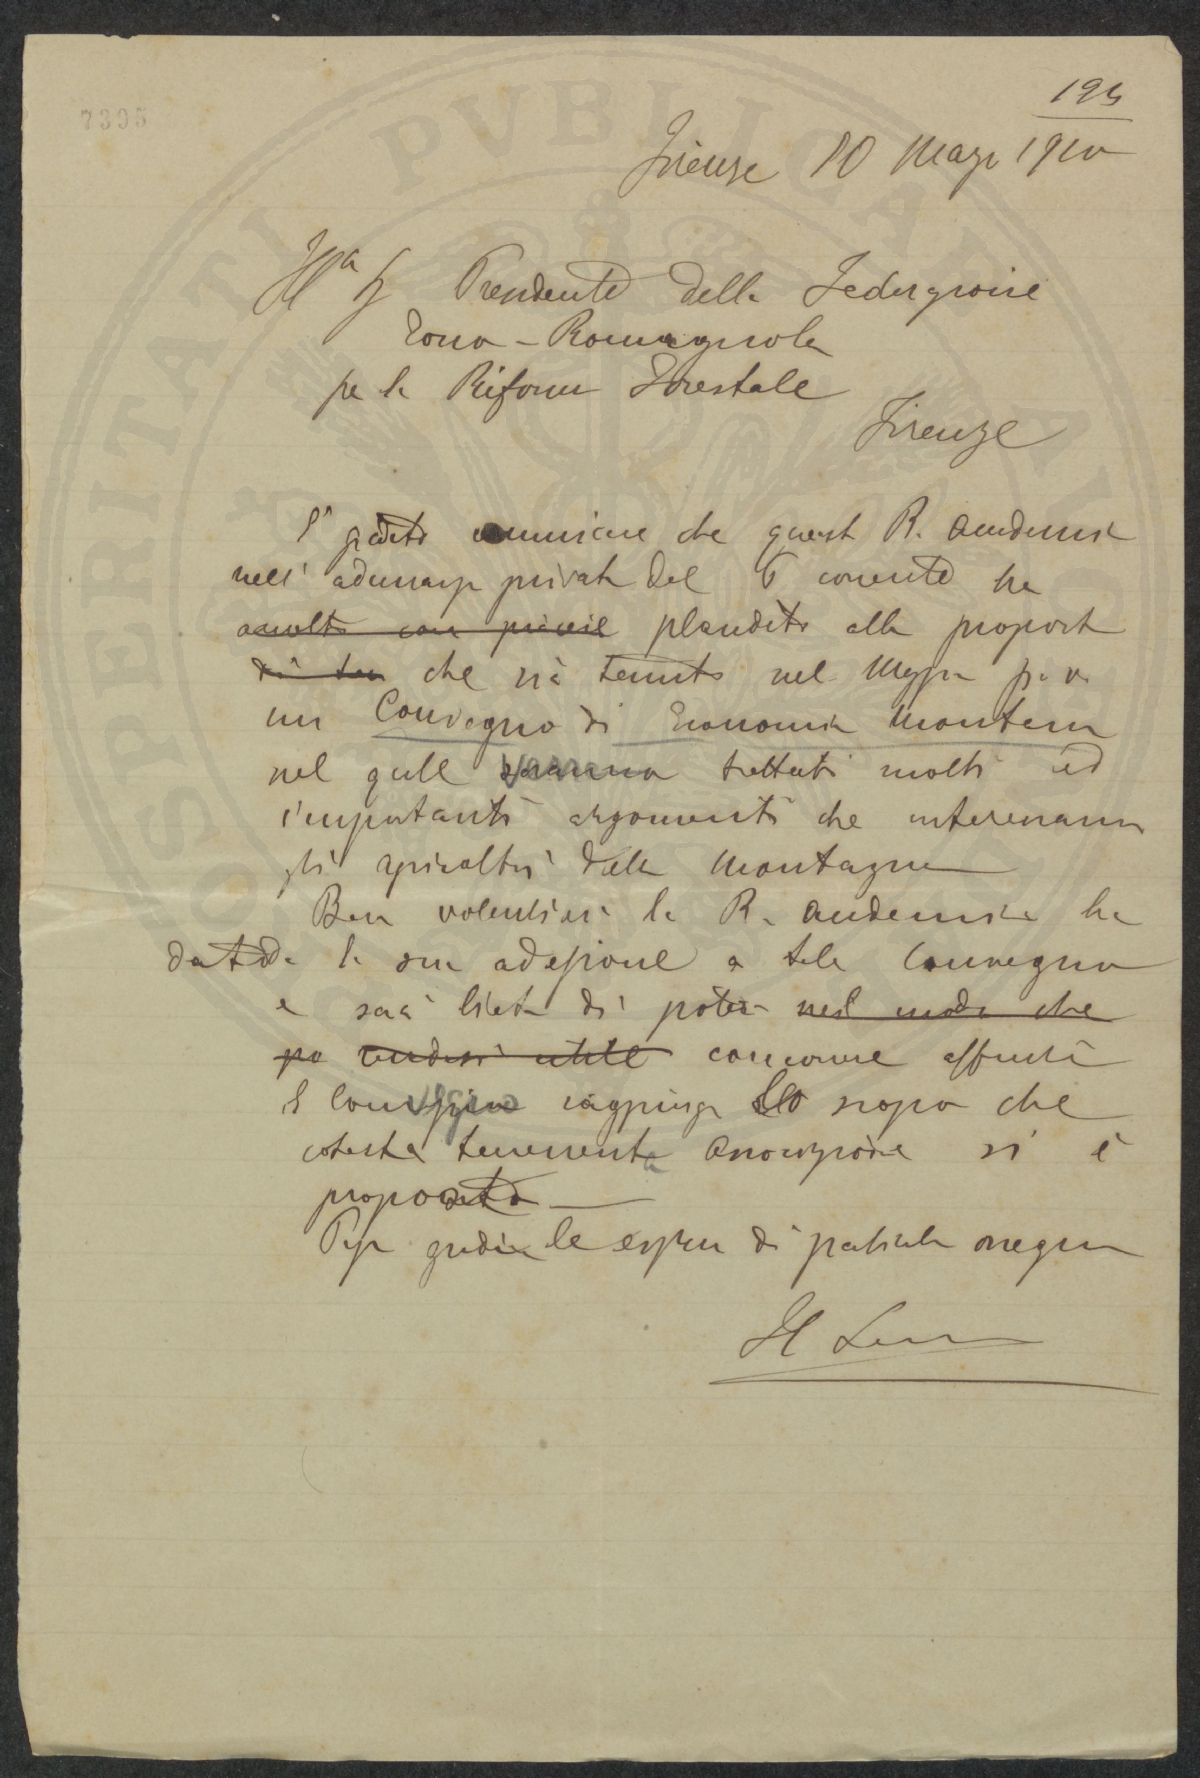 7395
193
Firenze 10 Marzo 1910
Ill.a Sig. Presidente della Federazione
Tosco-Romagnola
pe la Riforma Forestale
Firenze
comunicare che questa R. Accademia
nell' adunanza privata del 6 corrente ha
accolto con piacere plaudito alla proposta
che sia tenuto nel Maggio p. v.
un Convegno di Economia Montana
nel quale saranno trattati molti ed
importanti argomenti che interessano
gli agricoltori della Montagna
Ben volentieri la R. Accademia ha
dato la sua adesione a tale Convegno
e sarà lieta di poter nel modo che
può rendersi utile concorrere affinchè
il Convegno raggiunga lo scopo che
cotesta benemerita Associazione si è
proposto
gradire le espres di particola ossequio
Il